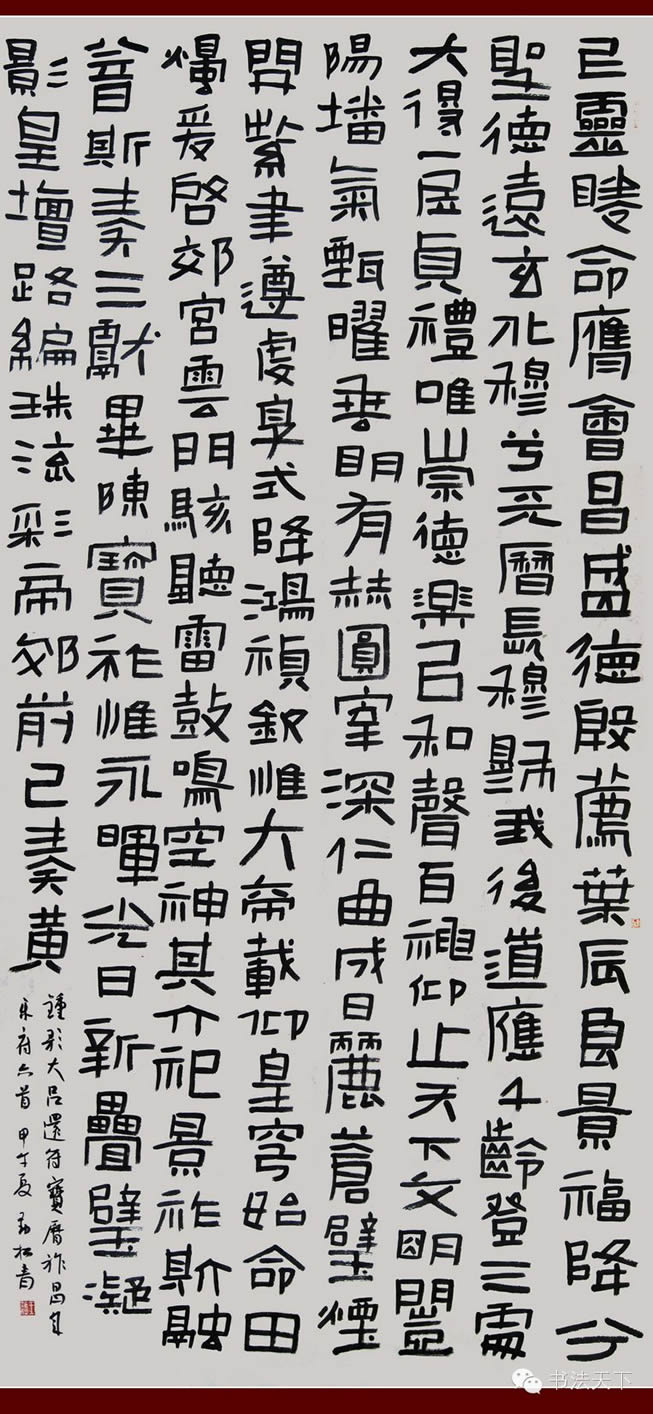 已靈睠命膺會昌盛德殷薦葉辰良景福降兮
聖德遠玄化穆兮天曆長穆穆我後道應千齡登三處
大得一居貞禮唯崇德樂已和聲百神仰止天下文明開
陽播氣甄曜垂明有赫圓宰深仁曲成日麗蒼璧煙
開紫聿遵虔享式降鴻禎欽惟大帝載仰皇穹始命田
燭爰啓郊宮雲門駭聽雷鼓鳴空神其介祀景祚斯融
斯奏三獻畢陳寶祚惟永暉光日新疊璧凝
影皇壇路編珠流彩帝郊前已奏黃
鍾歌大呂還符寶曆祚昌年
乐府六首 甲午夏 松青
书法天下